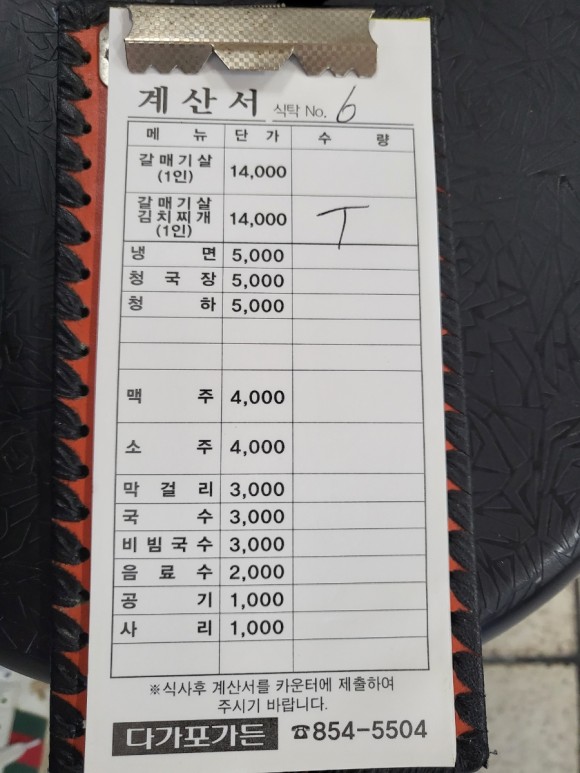 계산서 식탁 No. 6
메뉴 단가 수량
갈매기살
(1인) 14,000
갈매기살
김치찌개
(1인) 14,000 T
냉면 5,000
청국장 5,000
청하 5,000
맥주 4,000
소주 4,000
막걸리 3,000
국수 3,000
비빔국수 3,000
음료수 2,000
공기 1,000
사리 1,000
※식사후 계산서를 카운터에 제출하여
주시기 바랍니다.
다가포가든 ☎854-5504